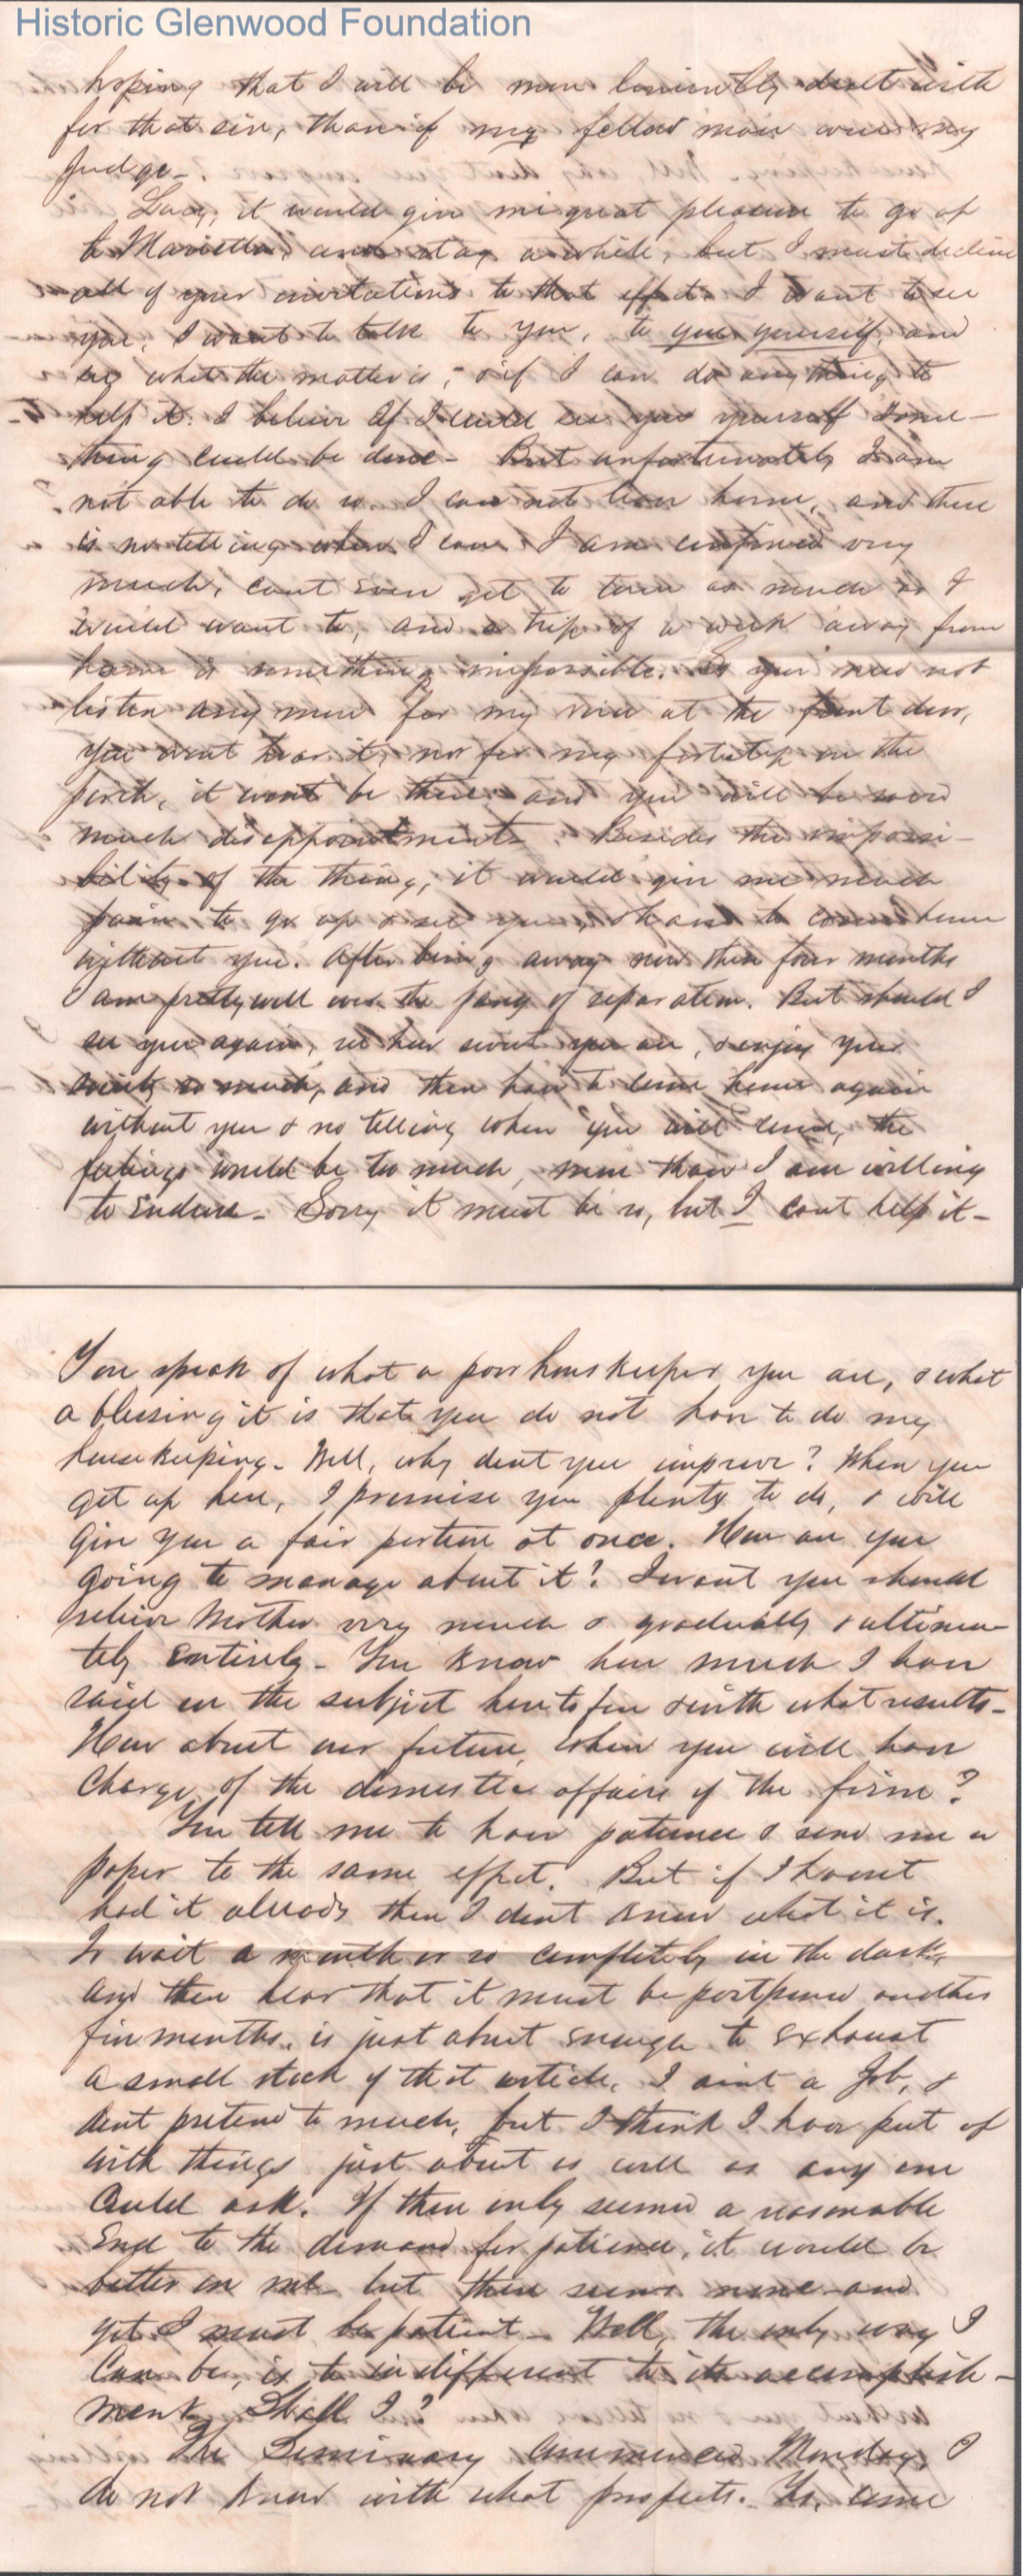 Historic Glenwood Foundation
hoping that I will be more leniently dealt with
for that sin, than if my fellow man were my
Judge-
Lucy, it would give me great pleasure to go up
to Marietta, and stay a while, but I must decline
all of your invitations to that effect. I want to see
you, I want to talk to you, to you yourself, and
see what the matter is, & if I can do anything to
help it. I believe if I could see you yourself some-
thing could be done- But unfortunately I am
not able to do so. I can not leave home, and there
is no telling when I can. I am confined very
much, cant even get to town as much as I
would want to, and a trip of a week away from
home is something impossible. So you need not
listen any more for my voice at the front door,
you wont hear it, nor for my footstep on the
porch, it wont be there and you will be saved
much disappointment. Besides the impossi-
bility of the thing, it would give me much
pain to go up & see you, & have to come home
without you. After being away more than four months
I am pretty well over the pang of separation. But should I
see you again, see how sweet you are, & enjoy your
society so much, and then have to come home again
without you & no telling when you will come, the
feelings would be too much, more than I am willing
to endure- Sorry it must be so, but I cant help it-
You speak of what a poor housekeeper you are, & what
a blessing it is that you do not have to do my
housekeeping- Well, why dont you improve? When you
get up here, I promise you plenty to do, & will
give you a fair portion at once. How are you
going to manage about it? I want you should
relieve Mother very much & gradually & ultima-
tely entirely- You know how much I have
said on the subject heretofore & with what results-
How about our future, when you will have
charge of the domestic affairs of the firm?
You tell me to have patience & send me a
paper to the same effect. But if I havent
had it already then I dont know what it is.
To wait a month or so completely in the dark,
and then hear that it must be postponed another
few months, is just about enough to exhaust
a small stock of that article. I aint a Job, &
dont pretend to much, but I think I have put up
with things just about as well as any one
could ask. If there only seemed a reasonable
end to the demand for patience, it would be
better on me- but there seems none- and
yet I must be patient- Well, the only way I
can be, is to indifferent to its accomplish-
ment. Shall I?
The Seminary commenced Monday, I
do not know with what prospects. Yr. came